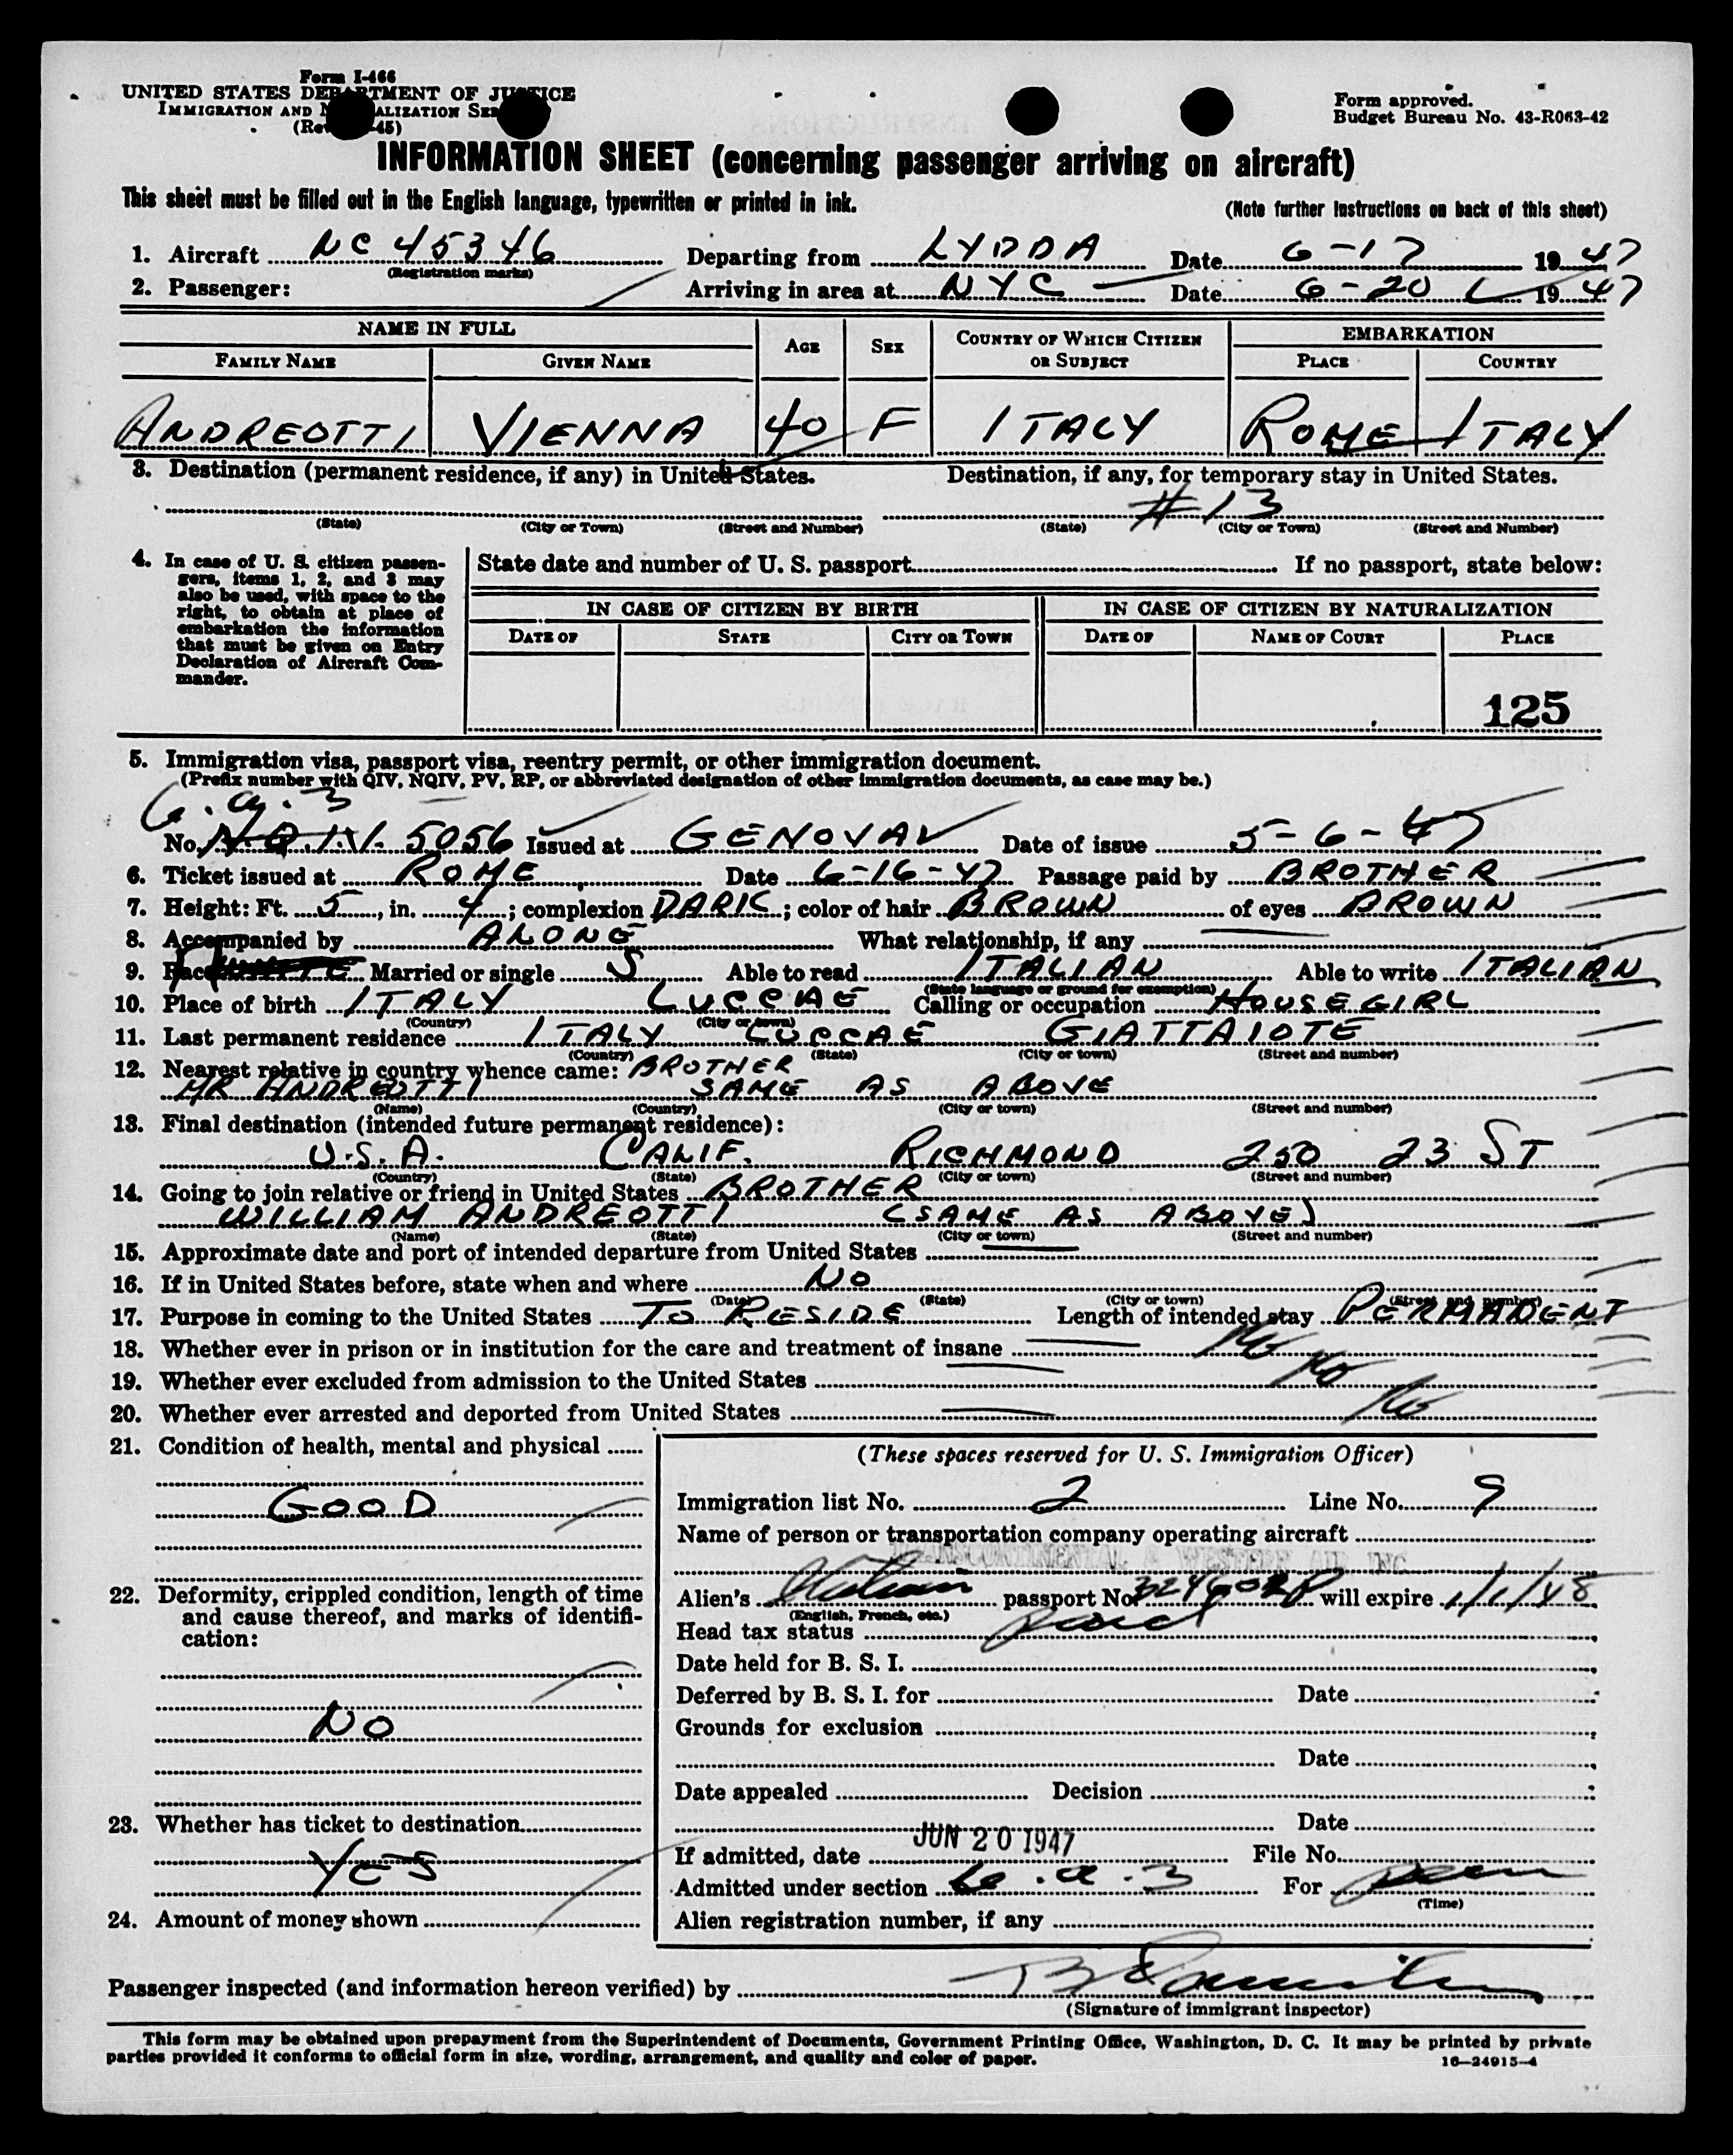 Form I-466
UNITED STATES DEPARTMENT OF JUSTICE
IMMIGRATION AND NATURALIZATION SER
(Rev -45)
Form approved.
Budget Bureau No. 43-R063-42
INFORMATION SHEET (concerning passenger arriving on aircraft)
This sheet must be filled out in the English language, typewritten or printed in ink.
(Note further instructions on back of this sheet)
1. Aircraft NC 45346 Departing from LYDDA Date 6-17 1947
(Registration marks)
2. Passenger: Arriving in area at NYC Date 6-20 1947
NAME IN FULL AGE SEX COUNTRY OF WHICH CITIZEN OR SUBJECT EMBARKATION
FAMILY NAME GIVEN NAME PLACE COUNTRY
ANDREOTTI VIENNA 40 F ITALY ROME ITALY
3. Destination (permanent residence, if any) in United States. Destination, if any, for temporary stay in United States.
#13
(State) (City or Town) (Street and Number) (State) (City or Town) (Street and Number)
4. In case of U. S. citizen passen-
gers, items 1, 2, and 3 may
also be used, with space to the
right, to obtain at place of
embarkation the information
that must be given on Entry
Declaration of Aircraft Com-
mander.
State date and number of U. S. passport If no passport, state below:
IN CASE OF CITIZEN BY BIRTH IN CASE OF CITIZEN BY NATURALIZATION
DATE OF STATE CITY OR TOWN DATE OF NAME OF COURT PLACE
125
5. Immigration visa, passport visa, reentry permit, or other immigration document.
(Prefix number with QIV, NQIV, PV, RP, or abbreviated designation of other immigration documents, as case may be.)
6.a.3
No. N.Q.I.V. 5056 Issued at GENOVA Date of issue 5-6-47
6. Ticket issued at ROME Date 6-16-47 Passage paid by BROTHER
7. Height: Ft. 5, in. 4; complexion DARK; color of hair BROWN of eyes BROWN
8. Accompanied by ALONE What relationship, if any
9. Race Married or single S Able to read ITALIAN Able to write ITALIAN
(State language or ground for exemption)
10. Place of birth ITALY LUCCAE Calling or occupation HOUSEGIRL
(Country) (City or town)
11. Last permanent residence ITALY LUCCAE GIATTAIOTE
(Country) (State) (City or town) (Street and number)
12. Nearest relative in country whence came: BROTHER
MR ANDREOTTI SAME AS ABOVE
(Name) (Country) (City or town) (Street and number)
13. Final destination (intended future permanent residence):
U.S.A. CALIF. RICHMOND 250 23 ST
(Country) (State) (City or town) (Street and number)
14. Going to join relative or friend in United States BROTHER
WILLIAM ANDREOTTI (SAME AS ABOVE)
(Name) (State) (City or town) (Street and number)
15. Approximate date and port of intended departure from United States
16. If in United States before, state when and where NO
(Date) (State) (City or town) (Street and number)
17. Purpose in coming to the United States TO RESIDE Length of intended stay PERMANENT
18. Whether ever in prison or in institution for the care and treatment of insane No
19. Whether ever excluded from admission to the United States No
20. Whether ever arrested and deported from United States No
21. Condition of health, mental and physical
GOOD
22. Deformity, crippled condition, length of time
and cause thereof, and marks of identifi-
cation:
NO
23. Whether has ticket to destination
YES
24. Amount of money shown
(These spaces reserved for U. S. Immigration Officer)
Immigration list No. 2 Line No. 9
Name of person or transportation company operating aircraft
TRANSCONTINENTAL & WESTERN AIR INC
Alien's Italian passport No. will expire 1/1/48
(English, French, etc.)
Head tax status
Date held for B. S. I.
Deferred by B. S. I. for Date
Grounds for exclusion
Date
Date appealed Decision
Date
If admitted, date JUN 20 1947 File No.
Admitted under section 6.a.3 For perm
(Time)
Alien registration number, if any
Passenger inspected (and information hereon verified) by
(Signature of immigrant inspector)
This form may be obtained upon prepayment from the Superintendent of Documents, Government Printing Office, Washington, D. C. It may be printed by private
parties provided it conforms to official form in size, wording, arrangement, and quality and color of paper.
16—24915-4